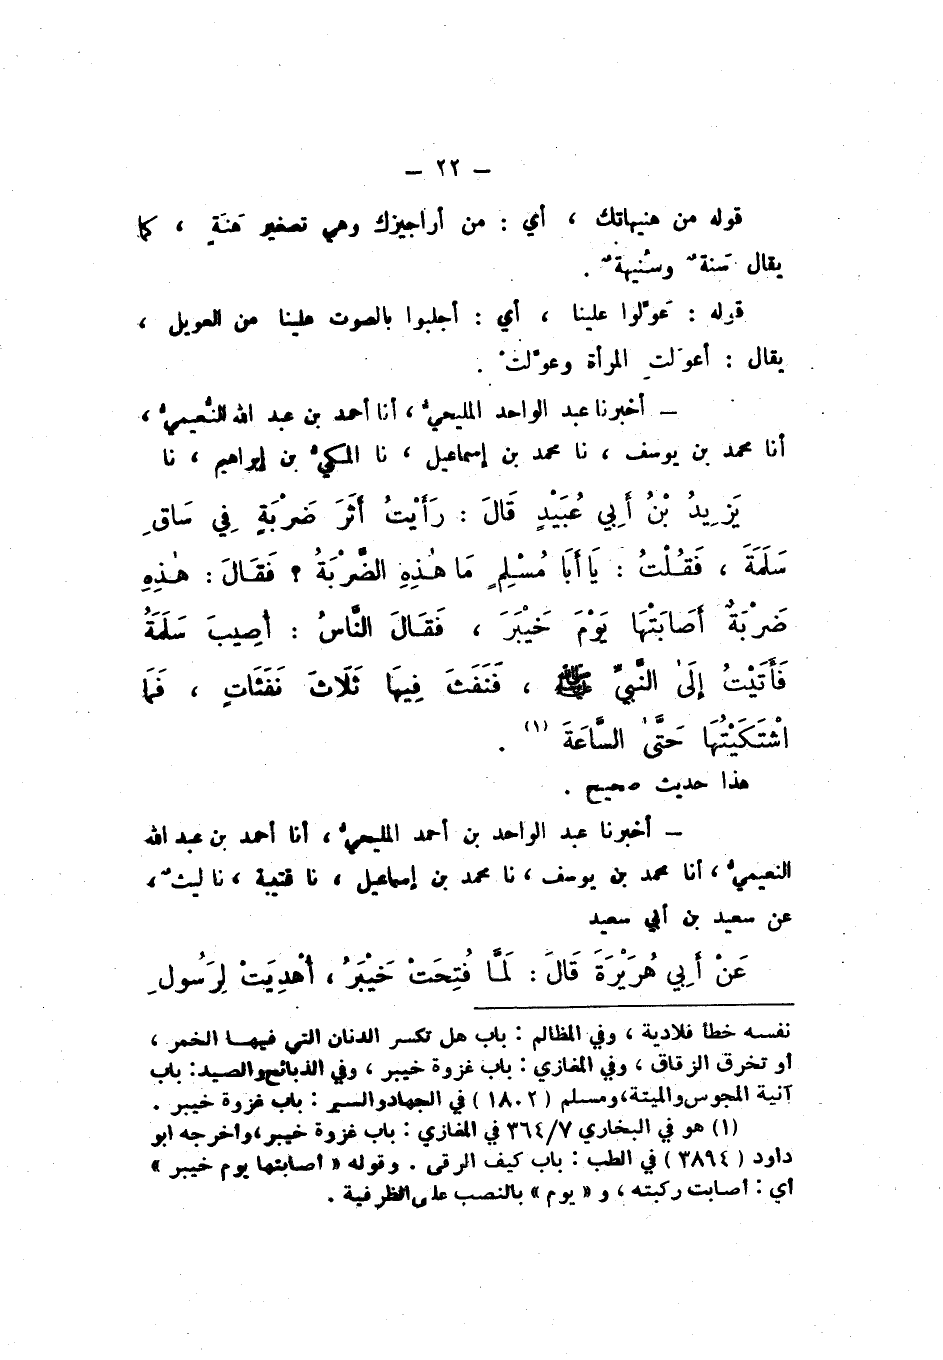 – ٢٢ –
قوله من هنيهاتك ، أي : من أراجيزك وهي تصغير هَنَةٍ ، كما
يقال سَنةٌ وسُنيهةٌ .
قوله : عَوَّلوا علينا ، أي : أجلبوا بالصوت علينا من العويل ،
يقال : أعوَلتِ المرأة وعوَّلتْ .
– أخبرنا عبد الواحد المليحيُّ ، أنا أحمد بن عبد الله النُّعيميُّ ،
أنا محمد بن يوسف ، نا محمد بن إسماعيل ، نا المكيُّ بن إبراهيم ، نا
يَزِيدُ بْنُ أَبِي عُبَيْدٍ قَالَ : رَأَيْتُ أَثَرَ ضَرْبَةٍ فِي سَاقِ
سَلَمَةَ ، فَقُلْتُ : يَا أَبَا مُسْلِمٍ مَا هٰذِهِ الضَّرْبَةُ ؟ فَقَالَ : هٰذِهِ
ضَرْبَةٌ أَصَابَتْهَا يَوْمَ خَيْبَرَ ، فَقَالَ النَّاسُ : أُصِيبَ سَلَمَةُ
فَأَتَيْتُ إِلَى النَّبِيِّ ﷺ ، فَنَفَثَ فِيهَا ثَلَاثَ نَفَثَاتٍ ، فَمَا
اشْتَكَيْتُهَا حَتَّى السَّاعَةَ (١) .
هذا حديث صحيح .
– أخبرنا عبد الواحد بن أحمد المليحيُّ ، أنا أحمد بن عبد الله
النعيميُّ ، أنا محمد بن يوسف ، نا محمد بن إسماعيل ، نا قتيبة ، نا ليثٌ ،
عن سعيد بن أبي سعيد
عَنْ أَبِي هُرَيْرَةَ قَالَ : لَمَّا فُتِحَتْ خَيْبَرُ ، أُهْدِيَتْ لِرَسُولِ
نفسه خطأ فلادية ، وفي المظالم : باب هل تكسر الدنان التي فيهـا الخمر ،
أو تخرق الزقاق ، وفي المغازي : باب غزوة خيبر ، وفي الذبائح والصيد : باب
آنية المجوس والميتة ، ومسلم ( ١٨٠٢ ) في الجهاد والسير : باب غزوة خيبر .
(١) هو في البخاري ٣٦٤/٧ في المغازي : باب غزوة خيبر ، وأخرجه أبو
داود ( ٣٨٩٤ ) في الطب : باب كيف الرقى . وقوله « أصابتها يوم خيبر »
أي : أصابت ركبته ، و « يوم » بالنصب على الظرفية .